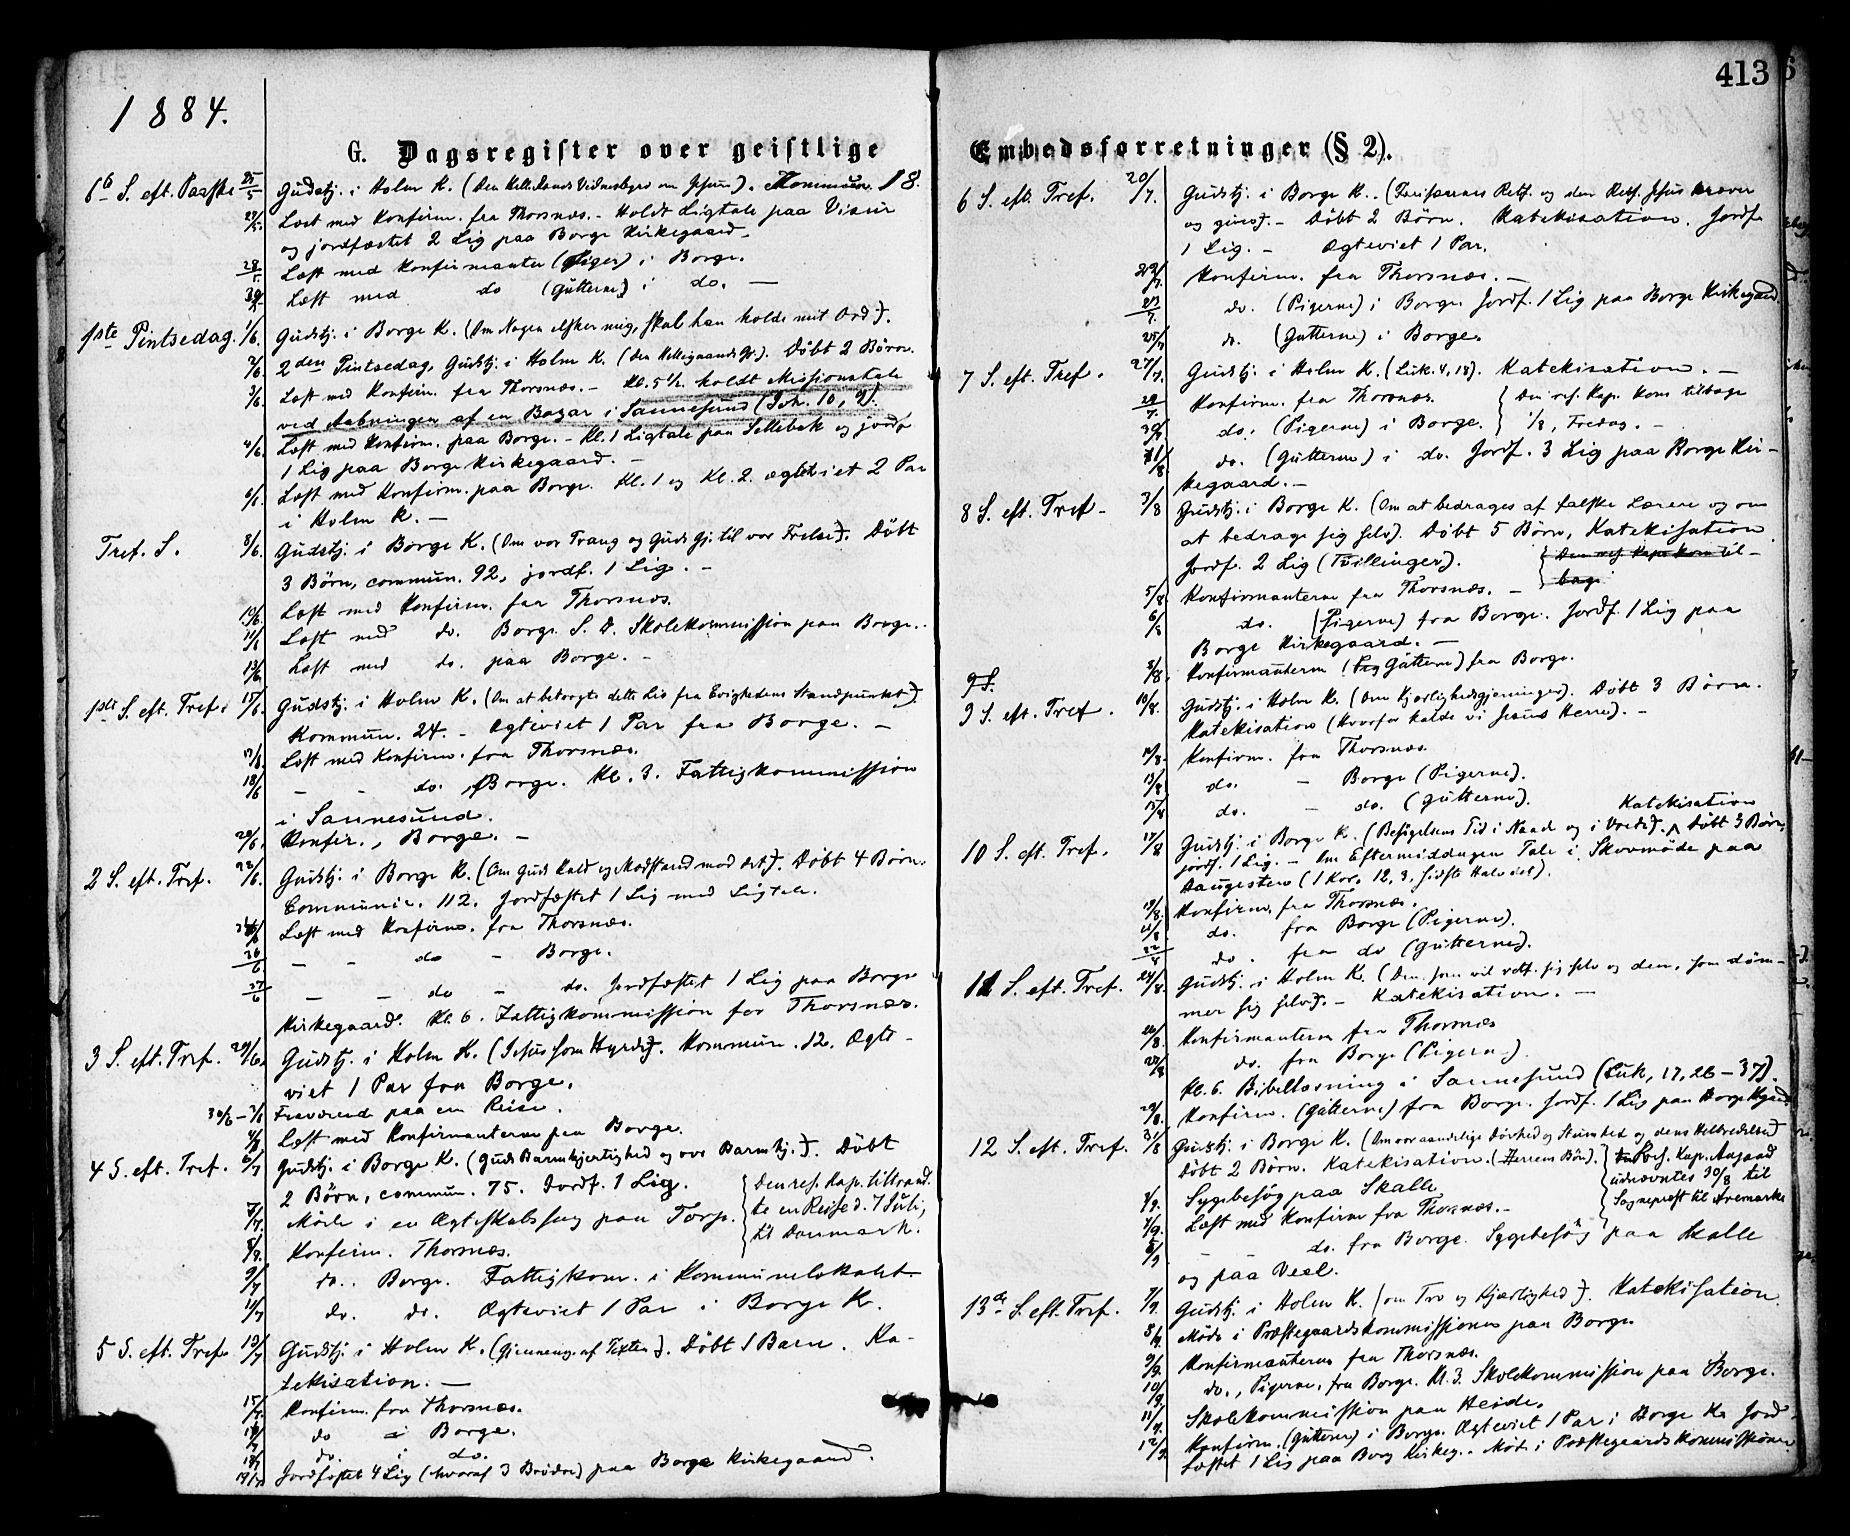 1884.
G. Dagsregister over geistlige
6te S. eft. Paaske 25/5 Gudstj. i Holm K. (Den Helligaands Vidnesbyrd om Jesum). Kommun. 18.
27/5. Læst med Konfirm. fra Thorsnæs. - Holdt Ligtale paa Visur
og jordfæstet 2 Lig paa Borge Kirkegaard -
28/5 Læst med Konfirmanter (Piger) i Borge.
30/5 Læst med do (Gutterne) i do. -
1ste Pintsedag. 1/6. Gudstj. i Borge K. (Om Nogen elsker mig, skal han holde mit Ord).
2/6 2den Pintsedag, Gudstj. i Holm K. (Den Helligaands Gj.). Döbt 2 Börn.
3/6. Læst med Konfirm. fra Thorsnæs. - Kl. 5 1/2 holdt Missionstale
ved Aabningen af en Bazar i Sannesund (Joh. 10, 9).
4/6. Læst med Konfirm. paa Borge. - Kl. 1 Ligtale paa Sellebak og jordf.
1 Lig paa Borge Kirkegaard. -
6/6. Læst med Konfirm. paa Borge. Kl. 1 og Kl. 2. ægteviet 2 Par
i Holm K. -
Tref. S. 8/6. Gudstj. i Borge K. (Om vor Trang og Guds Gj. til vor Frelse). Döbt
3 Börn, commun. 92, jordf. 1 Lig. -
10/6. Læst med Konfirm. fra Thorsnæs.
11/6 Læst med do. Borge. S. D. Skolekommission paa Borge.
13/6 Læst med do. paa Borge. -
1ste S. eft. Tref. 15/6. Gudstj. i Holm K. (Om at betragte dette Liv fra Evighedens Standpunkt).
Kommun. 24. - Ægteviet 1 Par fra Borge. -
17/6. Læst med Konfirm. fra Thorsnæs.
18/6 - - do. Borge. Kl. 3. Fattigkommission
i Sannesund.
20/6. Konfir., Borge. -
2 S. eft. Tref. 22/6. Gudstj. i Borge K. (Om Guds Kald og Modstand mod det). Döbt 4 Börn.
Communic. 112. Jordfæstet 1 Lig med Ligtale.
24/6 Læst med Konfirm. fra Thorsnæs.
26/6 - - do - Borge.
27/6 - - do - do. Jordfæstet 1 Lig paa Borge
Kirkegaard. Kl. 6. Fattigkommission for Thorsnæs.
3 S. eft. Tref. 29/6. Gudstj. i Holm K. (Jesus som Hyrde). Kommun. 12. Ægte-
viet 1 Par fra Borge.
30/6 - 3/7 Fraværend paa en Reise.
4/7 Læst med Konfirmanterne paa Borge.
4 S. eft. Tref. 6/7 Gudstj. i Borge K. (Guds Barmhjertighed og vor Barmhj.). Döbt
2 Börn, commun. 75. Jordf. 1 Lig. Den res. Kap. tiltraad-
7/7. Möde i en Ægteskabssag paa Torp. te en Reise d. 7 Juli,
8/7. Konfirm. Thorsnæs. til Danmark.
9/7 do. Borge. Fattigkom. i Kommunelokalet.
11/7 do. do. Ægteviet 1 Par i Borge K.
5 S. eft. Tref. 13/7 Gudstj. i Holm K. (Gjennemg. af Texten). Döbt 1 Barn. Ka-
tekisation. -
15/7. Konfirm. fra Thorsnæs.
do i Borge.
18/7 do. i do.
19/7 Jordfæstet 4 Lig (hvoraf 3 Brödre) paa Borge Kirkegaard.
413
Embedsforretninger (§ 2).
6 S. eft. Tref. 20/7. Gudstj. i Borge K. (Farisæernes Retf. og den Retf. Jesus kræver
og giver). - Döbt 2 Börn. Katekisation. Jordf.
1 Lig. - Ægteviet 1 Par.
22/7. Konfirm. fra Thorsnæs. -
23/7. do. (Pigerne) i Borge. Jordf. 1 Lig paa Borge Kirkegaard.
25/7 do. (Gutterne) i Borge.
7 S. eft. Tref. 27/7. Gudstj. i Holm K. (Luk. 4, 18). Katekisation. -
29/7. Konfirm. fra Thorsnæs. Den res. Kap. kom tilbage
30/7. do. (Pigerne) i Borge. 1/8, Fredag. -
1/8 do. (Gutterne) i do. Jordf. 3 Lig paa Borge Kir-
kegaard. -
8 S. eft. Tref - 3/8 Gudstj. i Borge K. (Om at bedrages af falske Lærere og om
at bedrage sig selv). Döbt 5 Börn, Katekisation.
Jordf. 2 Lig (Tvillinger). Den res. Kap. kom til-
bage
5/8. Konfirmanterne fra Thorsnæs. -
6/8 do. (Pigerne) fra Borge. Jordf. 1 Lig paa
Borge Kirkegaard. -
8/8. Konfirmanterne (Pig Gutterne) fra Borge.
9 S.
9 S. eft. Tref. 10/8. Gudstj. i Holm K. (Om Kjærlighedsgjerninger). Döbt 3 Börn.
Katekisation (Hvorfor kalde vi Jesus Herre). -
12/8. Konfirm. fra Thorsnæs.
13/8 do. - Borge (Pigerne).
15/8 do. - do. (Gutterne). Katekisation
10 S. eft. Tref. 17/8 Gudstj. i Borge K. (Besögelsens Tid i Naade og i Vrede). Döbt 3 Börn,
jordf. 1 Lig. - Om Eftermiddagen Tale i Skovmöde paa
Haugesten (1 Kor. 12, 3, sidste Halvdel).
19/8. Konfirm. fra Thorsnæs.
do. fra Borge (Pigerne).
22/8 do. fra do (Gutterne).
11 S. eft. Tref. 24/8. Gudstj. i Holm K. (Den, som vil retf. sig selv og den, som döm-
mer sig selv). - Katekisation. -
26/8. Konfirmanterne fra Thorsnæs
27/8 do. fra Borge (Pigerne).
Kl. 6. Bibellæsning i Sannesund (Luk, 17, 26-37).
29/8. Konfirm. (Gutterne) fra Borge. Jordf. 1 Lig paa Borge Kgaard
12 S. eft. Tref. 31/8 Gudstj. i Borge K. (Om vor aandelige Dövhed og Stumhed og dens Helbredelse)
Döbt 2 Börn. Katekisation. (Herrens Bön). Res. Kap. Aagaard
2/9. Sygebesög paa Skalle udnævntes 30/8 til
Læst med Konfirm fra Thorsnæs. - Sognepræst til Aremarke
5/9 - - do. fra Borge. Sygebesög paa Skalle
og paa Veel.
13de S. eft. Tref. 7/9. Gudstj. i Holm K. (om Tro og Kjærlighed). Katekisation.
8/9. Möde i Præstegaardskommissionen paa Borge
9/9. Konfirmanterne fra Thorsnæs.
10/9 do., Pigerne, fra Borge. Kl. 3. Skolekommission paa Borge.
11/9. Skolekommission paa Heide.
12/9. Konfirm. (Gutterne) i Borge. Ægteviet 1 Par i Borge K. Jord-
fæstet 1 Lig paa Borg Kirkeg. - Möde i Præstegaardskommissionen